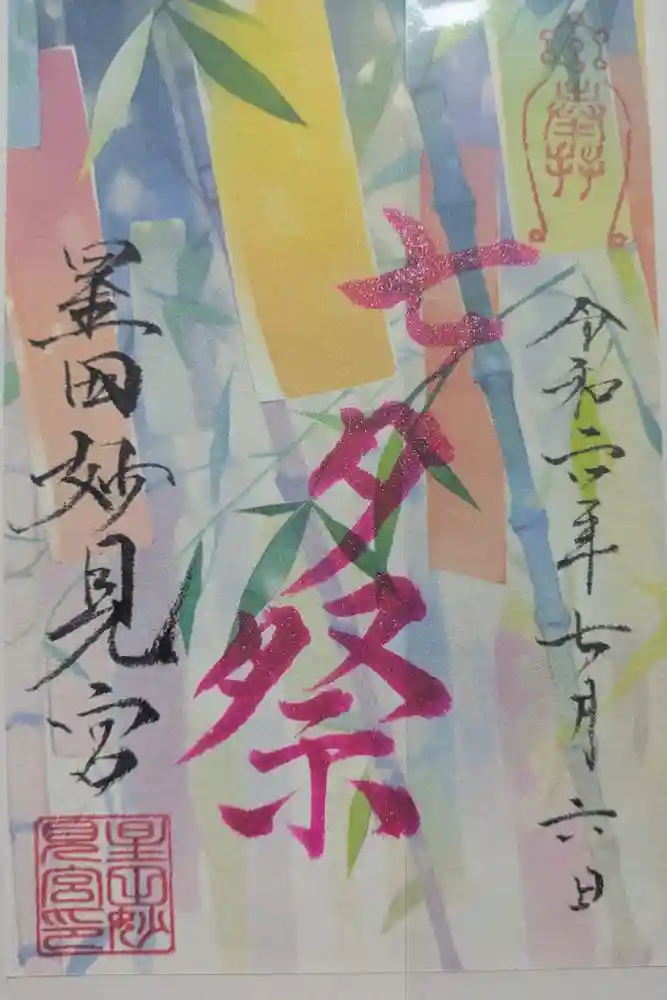 奉拝
令和六年七月六日
七夕祭
星田妙見宮
星田妙
見宮印